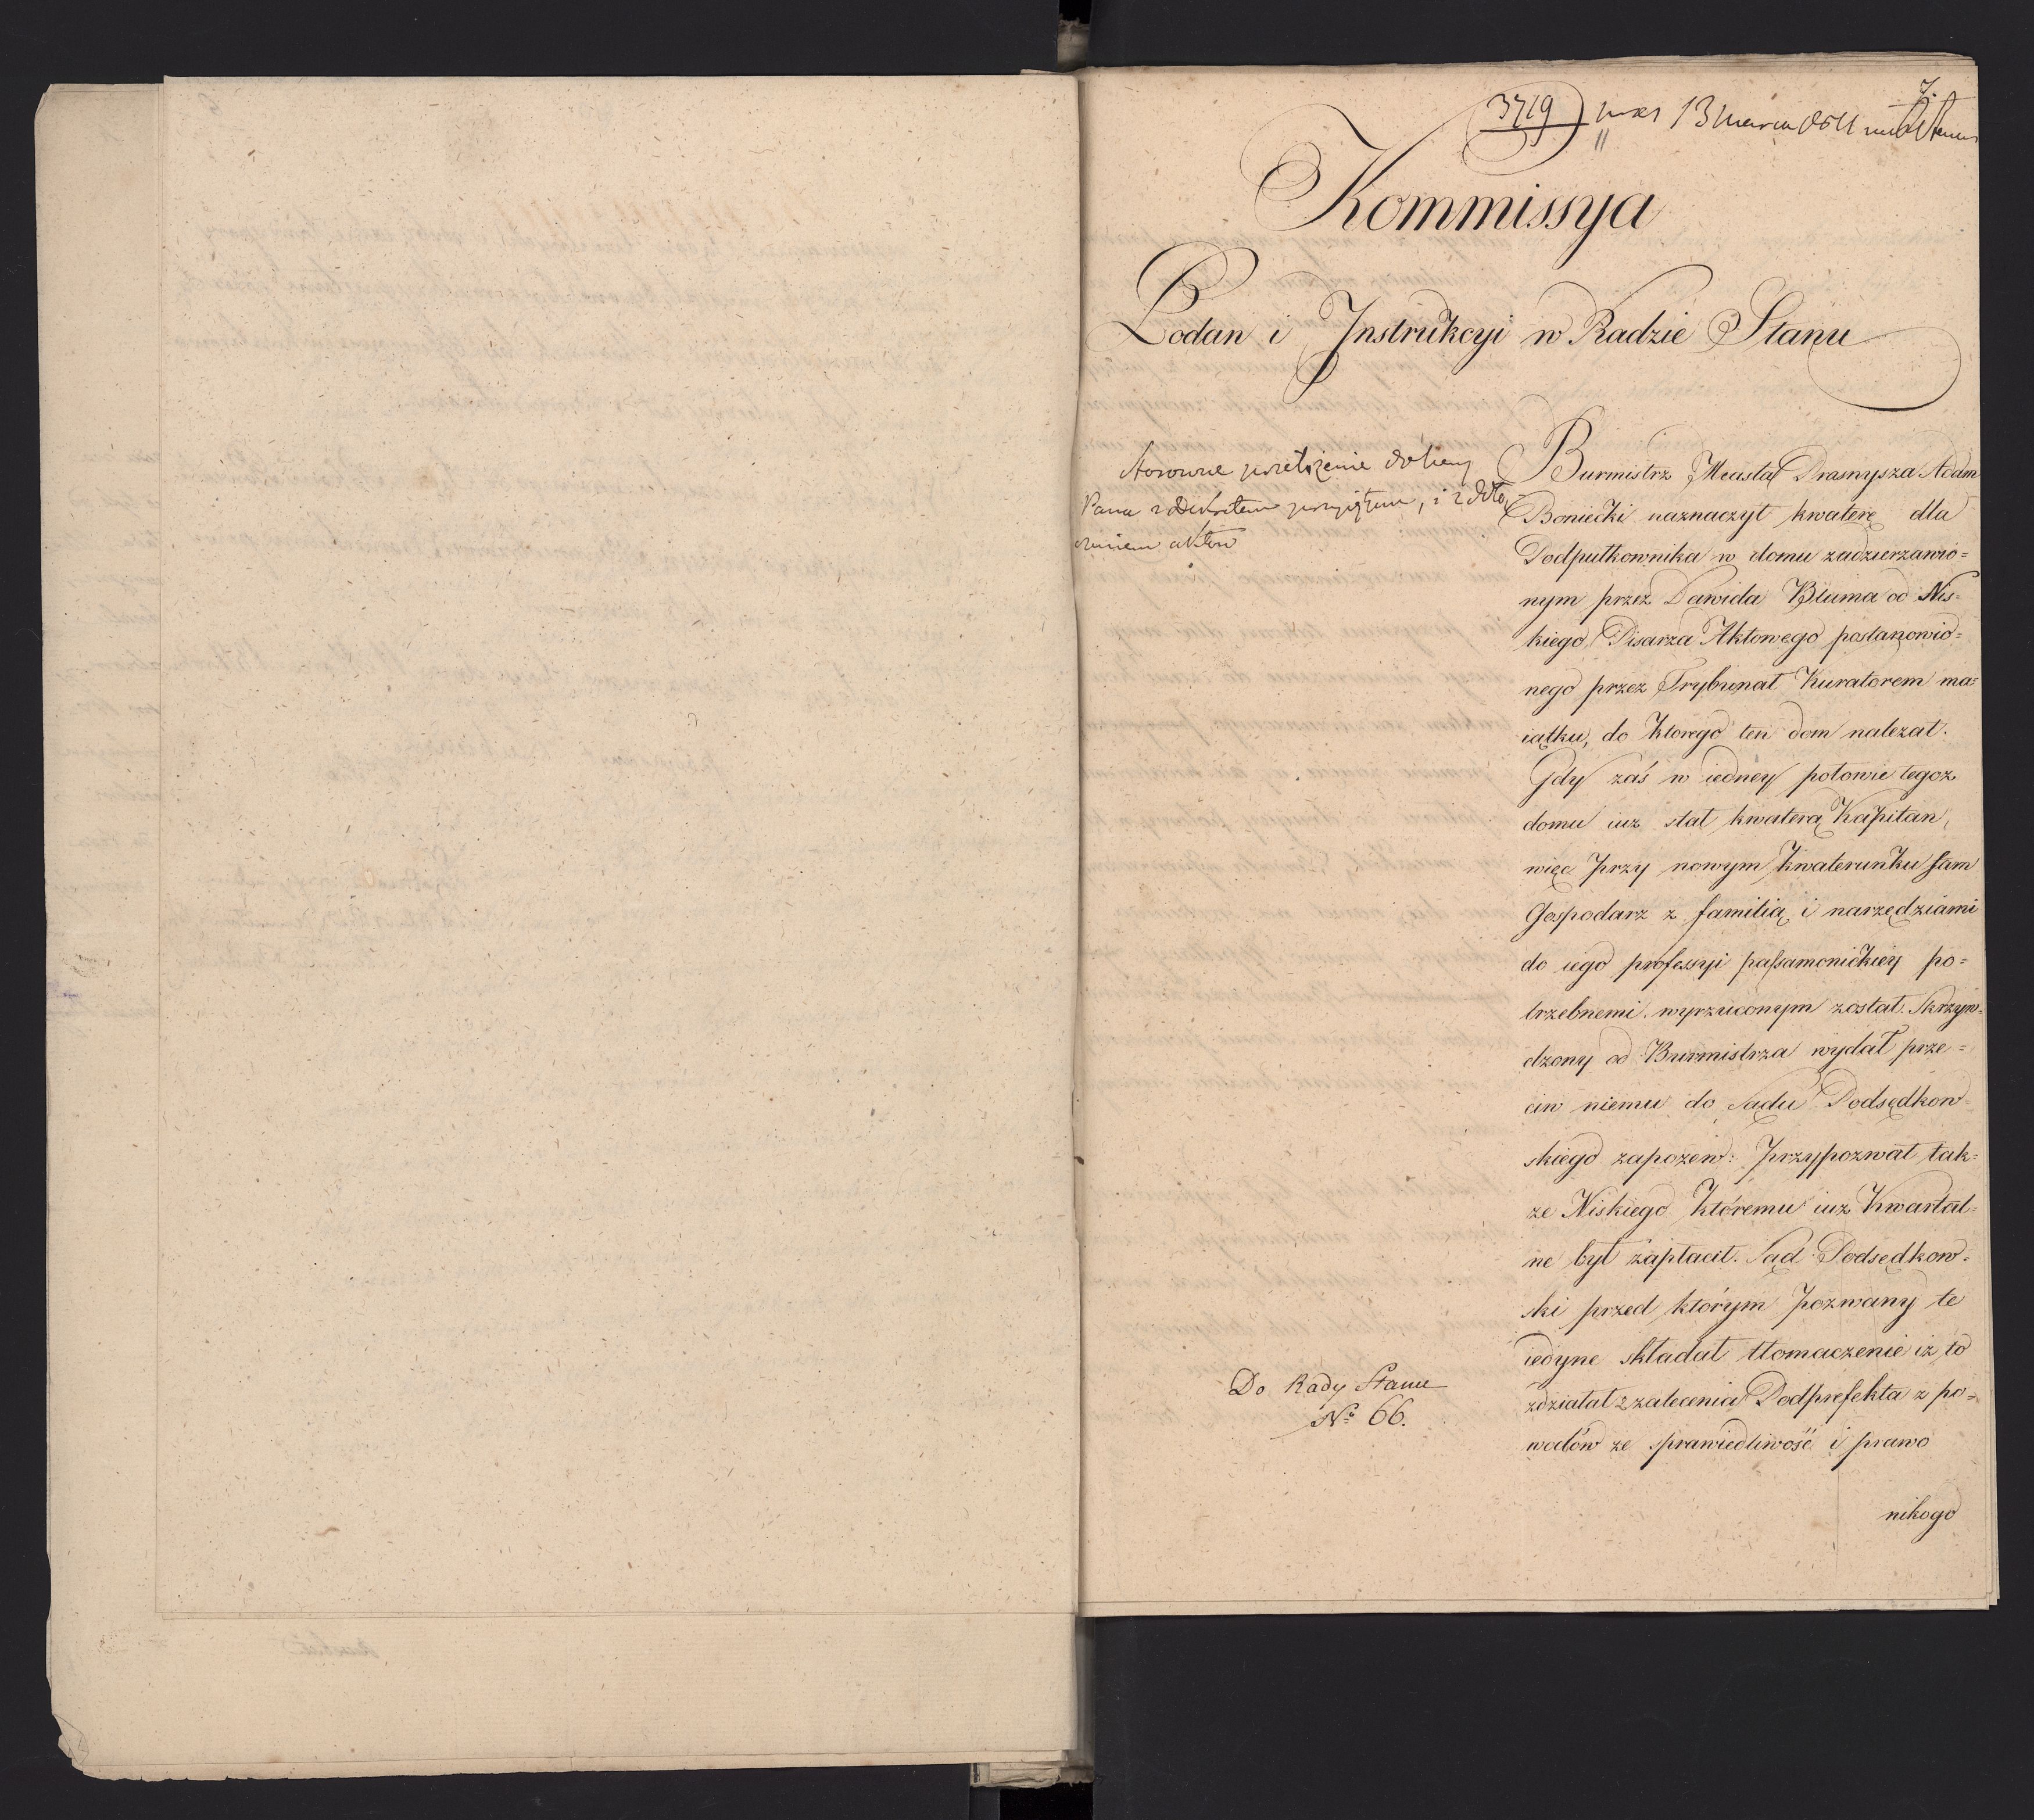 7.
3719
13 Marca 1811
Kommissya
Podan i Instrukcyi w Radzie Stanu
stosowne przełożenie do Kr
Pana z Dekretem przyiętym, i z dołą
czeniem aktów
Burmistrz Miasta Prasnysza Adam
Boniecki naznaczył kwaterę dla
Podpułkownika w domu zadzierzawio=
nym przez Dawida Bluma od Nis=
kiego Pisarza Aktowego postanowio=
nego przez Trybunał Kuratorem ma=
iątku, do ktorego ten dom nalezał.
Gdy zaś w iedney połowie tegoz
domu iuz stał kwaterą Kapitan,
więc przy nowym kwaterunku sam
Gospodarz z familią i narzędziami
do iego professyi passamonickiey po=
trzebnemi wyrzuconym został. Skrzyw=
dzony od Burmistrza wydał prze=
ciw niemu do Sądu Podsędkow=
skiego zapozew: Przypozwał tak=
ze Niskiego któremu iuz Kwartal=
ne był zapłacił. Sąd Podsędkow=
ski przed którym pozwany te
iedyne składał tłomaczenie iz to
zdziałał z zalecenia Podprefekta z po=
wodów ze sprawiedliwość i prawo
nikogo
Do Rady Stanu
No 66.